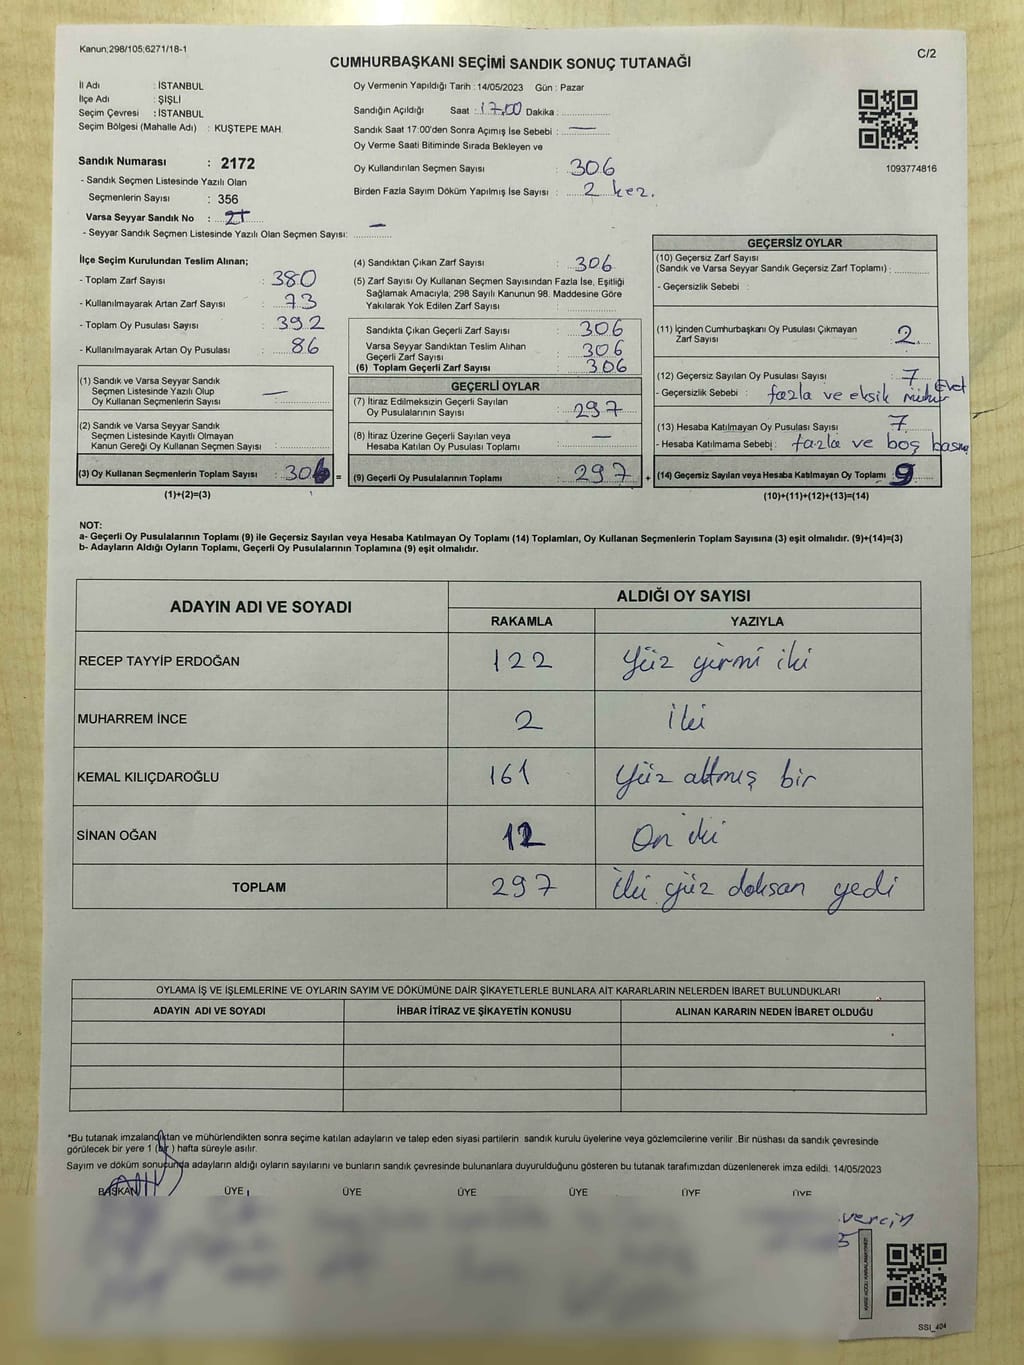 Kanun;298/105;6271/18-1
C/2
CUMHURBAŞKANI SEÇİMİ SANDIK SONUÇ TUTANAĞI
İl Adı : İSTANBUL
İlçe Adı : ŞİŞLİ
Seçim Çevresi : İSTANBUL
Seçim Bölgesi (Mahalle Adı) : KUŞTEPE MAH.
Sandık Numarası : 2172
- Sandık Seçmen Listesinde Yazılı Olan
Seçmenlerin Sayısı : 356
Varsa Seyyar Sandık No :
- Seyyar Sandık Seçmen Listesinde Yazılı Olan Seçmen Sayısı: —
Oy Vermenin Yapıldığı Tarih : 14/05/2023 Gün : Pazar
Sandığın Açıldığı Saat : 17.00 Dakika :
Sandık Saat 17:00'den Sonra Açımış İse Sebebi : —
Oy Verme Saati Bitiminde Sırada Bekleyen ve
Oy Kullandırılan Seçmen Sayısı : 306
Birden Fazla Sayım Döküm Yapılmış İse Sayısı : 2 kez.
1093774816
İlçe Seçim Kurulundan Teslim Alınan;
- Toplam Zarf Sayısı : 380
- Kullanılmayarak Artan Zarf Sayısı : 73
- Toplam Oy Pusulası Sayısı : 392
- Kullanılmayarak Artan Oy Pusulası : 86
(1) Sandık ve Varsa Seyyar Sandık
Seçmen Listesinde Yazılı Olup
Oy Kullanan Seçmenlerin Sayısı : —
(2) Sandık ve Varsa Seyyar Sandık
Seçmen Listesinde Kayıtlı Olmayan
Kanun Gereği Oy Kullanan Seçmen Sayısı :
(3) Oy Kullanan Seçmenlerin Toplam Sayısı : 306 =
(1)+(2)=(3)
(4) Sandıktan Çıkan Zarf Sayısı : 306
(5) Zarf Sayısı Oy Kullanan Seçmen Sayısından Fazla İse, Eşitliği
Sağlamak Amacıyla; 298 Sayılı Kanunun 98. Maddesine Göre
Yakılarak Yok Edilen Zarf Sayısı :
Sandıkta Çıkan Geçerli Zarf Sayısı : 306
Varsa Seyyar Sandıktan Teslim Alıhan
Geçerli Zarf Sayısı : 306
(6) Toplam Geçerli Zarf Sayısı : 306
GEÇERLİ OYLAR
(7) İtiraz Edilmeksizin Geçerli Sayılan
Oy Pusulalarının Sayısı : 297
(8) İtiraz Üzerine Geçerli Sayılan veya
Hesaba Katılan Oy Pusulası Toplamı : —
(9) Geçerli Oy Pusulalarının Toplamı : 297 +
GEÇERSİZ OYLAR
(10) Geçersiz Zarf Sayısı
(Sandık ve Varsa Seyyar Sandık Geçersiz Zarf Toplamı) :
- Geçersizlik Sebebi :
(11) İçinden Cumhurbaşkanı Oy Pusulası Çıkmayan
Zarf Sayısı : 2
(12) Geçersiz Sayılan Oy Pusulası Sayısı : 7
- Geçersizlik Sebebi : fazla ve eksik mühür Evet
(13) Hesaba Katılmayan Oy Pusulası Sayısı : 7
- Hesaba Katılmama Sebebi : fazla ve boş basma
(14) Geçersiz Sayılan veya Hesaba Katılmayan Oy Toplamı : 9
(10)+(11)+(12)+(13)=(14)
NOT:
a- Geçerli Oy Pusulalarının Toplamı (9) ile Geçersiz Sayılan veya Hesaba Katılmayan Oy Toplamı (14) Toplamları, Oy Kullanan Seçmenlerin Toplam Sayısına (3) eşit olmalıdır. (9)+(14)=(3)
b- Adayların Aldığı Oyların Toplamı, Geçerli Oy Pusulalarının Toplamına (9) eşit olmalıdır.
ADAYIN ADI VE SOYADI ALDIĞI OY SAYISI
RAKAMLA YAZIYLA
RECEP TAYYİP ERDOĞAN 122 Yüz yirmi iki
MUHARREM İNCE 2 iki
KEMAL KILIÇDAROĞLU 161 Yüz altmış bir
SİNAN OĞAN 12 On iki
TOPLAM 297 İki yüz doksan yedi
OYLAMA İŞ VE İŞLEMLERİNE VE OYLARIN SAYIM VE DÖKÜMÜNE DAİR ŞİKAYETLERLE BUNLARA AİT KARARLARIN NELERDEN İBARET BULUNDUKLARI
ADAYIN ADI VE SOYADI İHBAR İTİRAZ VE ŞİKAYETİN KONUSU ALINAN KARARIN NEDEN İBARET OLDUĞU
*Bu tutanak imzalandıktan ve mühürlendikten sonra seçime katılan adayların ve talep eden siyasi partilerin sandık kurulu üyelerine veya gözlemcilerine verilir .Bir nüshası da sandık çevresinde
görülecek bir yere 1 (bir ) hafta süreyle asılır.
Sayım ve döküm sonuçunda adayların aldığı oyların sayılarını ve bunların sandık çevresinde bulunanlara duyurulduğunu gösteren bu tutanak tarafımızdan düzenlenerek imza edildi. 14/05/2023
BAŞKAN ÜYE ÜYE ÜYE ÜYE ÜYE ÜYE
SSI_404